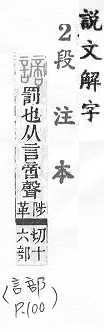 說文解字
2段注本
謫
罰也从言啻聲
陟革
切十
六部
(言部
P.100)